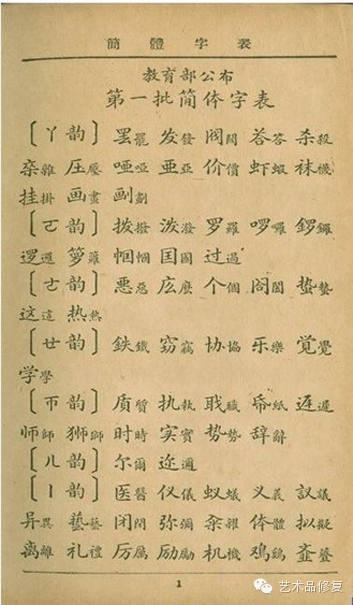 簡體字表
教育部公布
第一批简体字表
〔ㄚ韵〕 罢罷 发發 阀閥 荅答 杀殺
杂雜 压壓 哑啞 亚亞 价價 虾蝦 袜襪
挂掛 画畫 㓰劃
〔ㄛ韵〕 拨撥 泼潑 罗羅 啰囉 锣鑼
逻邏 箩籮 帼幗 囯國 过過
〔ㄜ韵〕 恶惡 庅麼 个個 阁閣 蛰蟄
这這 热熱
〔ㄝ韵〕 鉄鐵 窃竊 协協 乐樂 觉覺
学學
〔ㄭ韵〕 质質 执執 职職 帋紙 迟遲
师師 狮獅 时時 实實 势勢 辞辭
〔ㄦ韵〕 尔爾 迩邇
〔ㄧ韵〕 医醫 仪儀 蚁蟻 义義 议議
异異 藝 闭閉 弥彌 籴糴 体體 拟擬
离離 礼禮 厉厲 励勵 机機 鸡鷄
1
艺术品修复